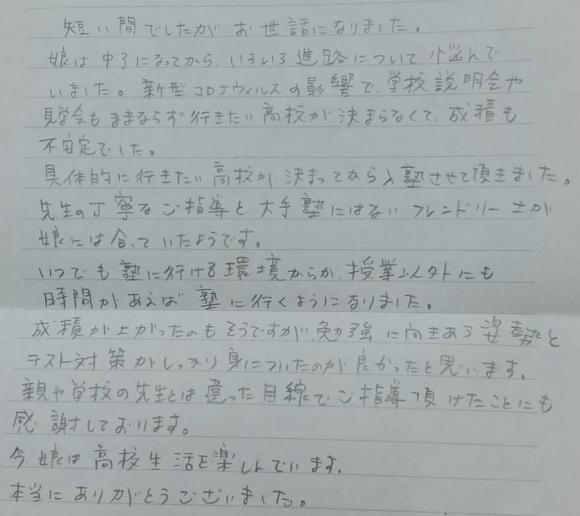 短い間でしたがお世話になりました。
娘は中3になってから、いろいろ進路について悩んで
いました。新型コロナウィルスの影響で、学校説明会や
見学会もままならず行きたい高校が決まらなくて、成績も
不安定でした。
具体的に行きたい高校が決まってから入塾させて頂きました。
先生の丁寧なご指導と、大手塾にはないフレンドリーさが
娘には合っていたようです。
いつでも塾に行ける環境からか、授業以外にも
時間があえば塾に行くようになりました。
成績が上がったのもそうですが、勉強に向きあう姿勢と
テスト対策がしっかり身についたのが良かったと思います。
親や学校の先生とは違った目線でご指導頂けたことにも
感謝しております。
今娘は高校生活を楽しんでいます。
本当にありがとうございました。